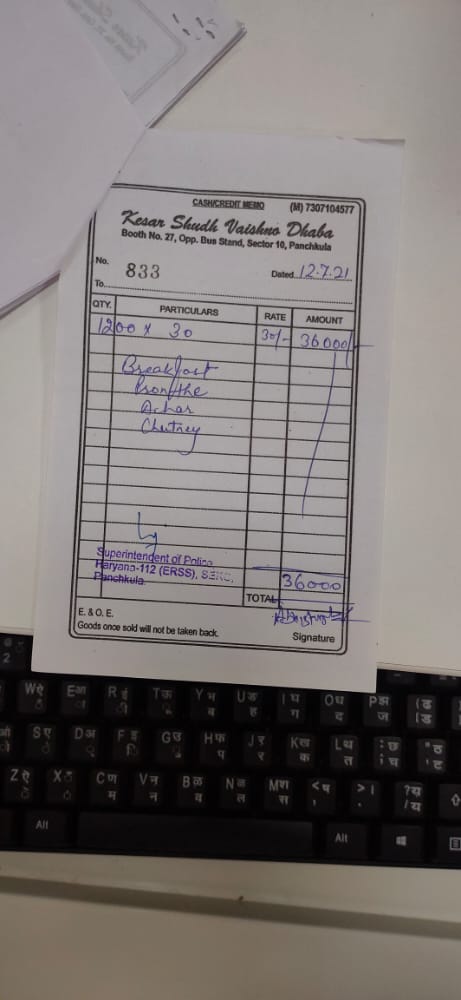 CASH/CREDIT MEMO (M) 7307104577
Kesar Shudh Vaishno Dhaba
Booth No. 27, Opp. Bus Stand, Sector 10, Panchkula
No. 833 Dated 12.7.21
To
QTY. PARTICULARS RATE AMOUNT
1200 x 30 30/- 36000/-
Breakfast
Pronthe
Achar
Chutney
Superintendent of Police
Haryana-112 (ERSS), SEKC,
Panchkula
36000
TOTAL
E. & O. E.
Goods once sold will not be taken back.
Signature
2
W ऐ E आ R ई T ऊ Y भ U ङ I घ O ध P झ { ढ
ै ा ी ू ब ह ग द ज [ ड
S ए D अ F इ G उ H फ J र K ख L थ : छ " ठ
े ् ि ु प र क त ; च ' ट
Z X C ण V न B N M श < ष > । ? य
म न व ल स , . /
Alt Alt